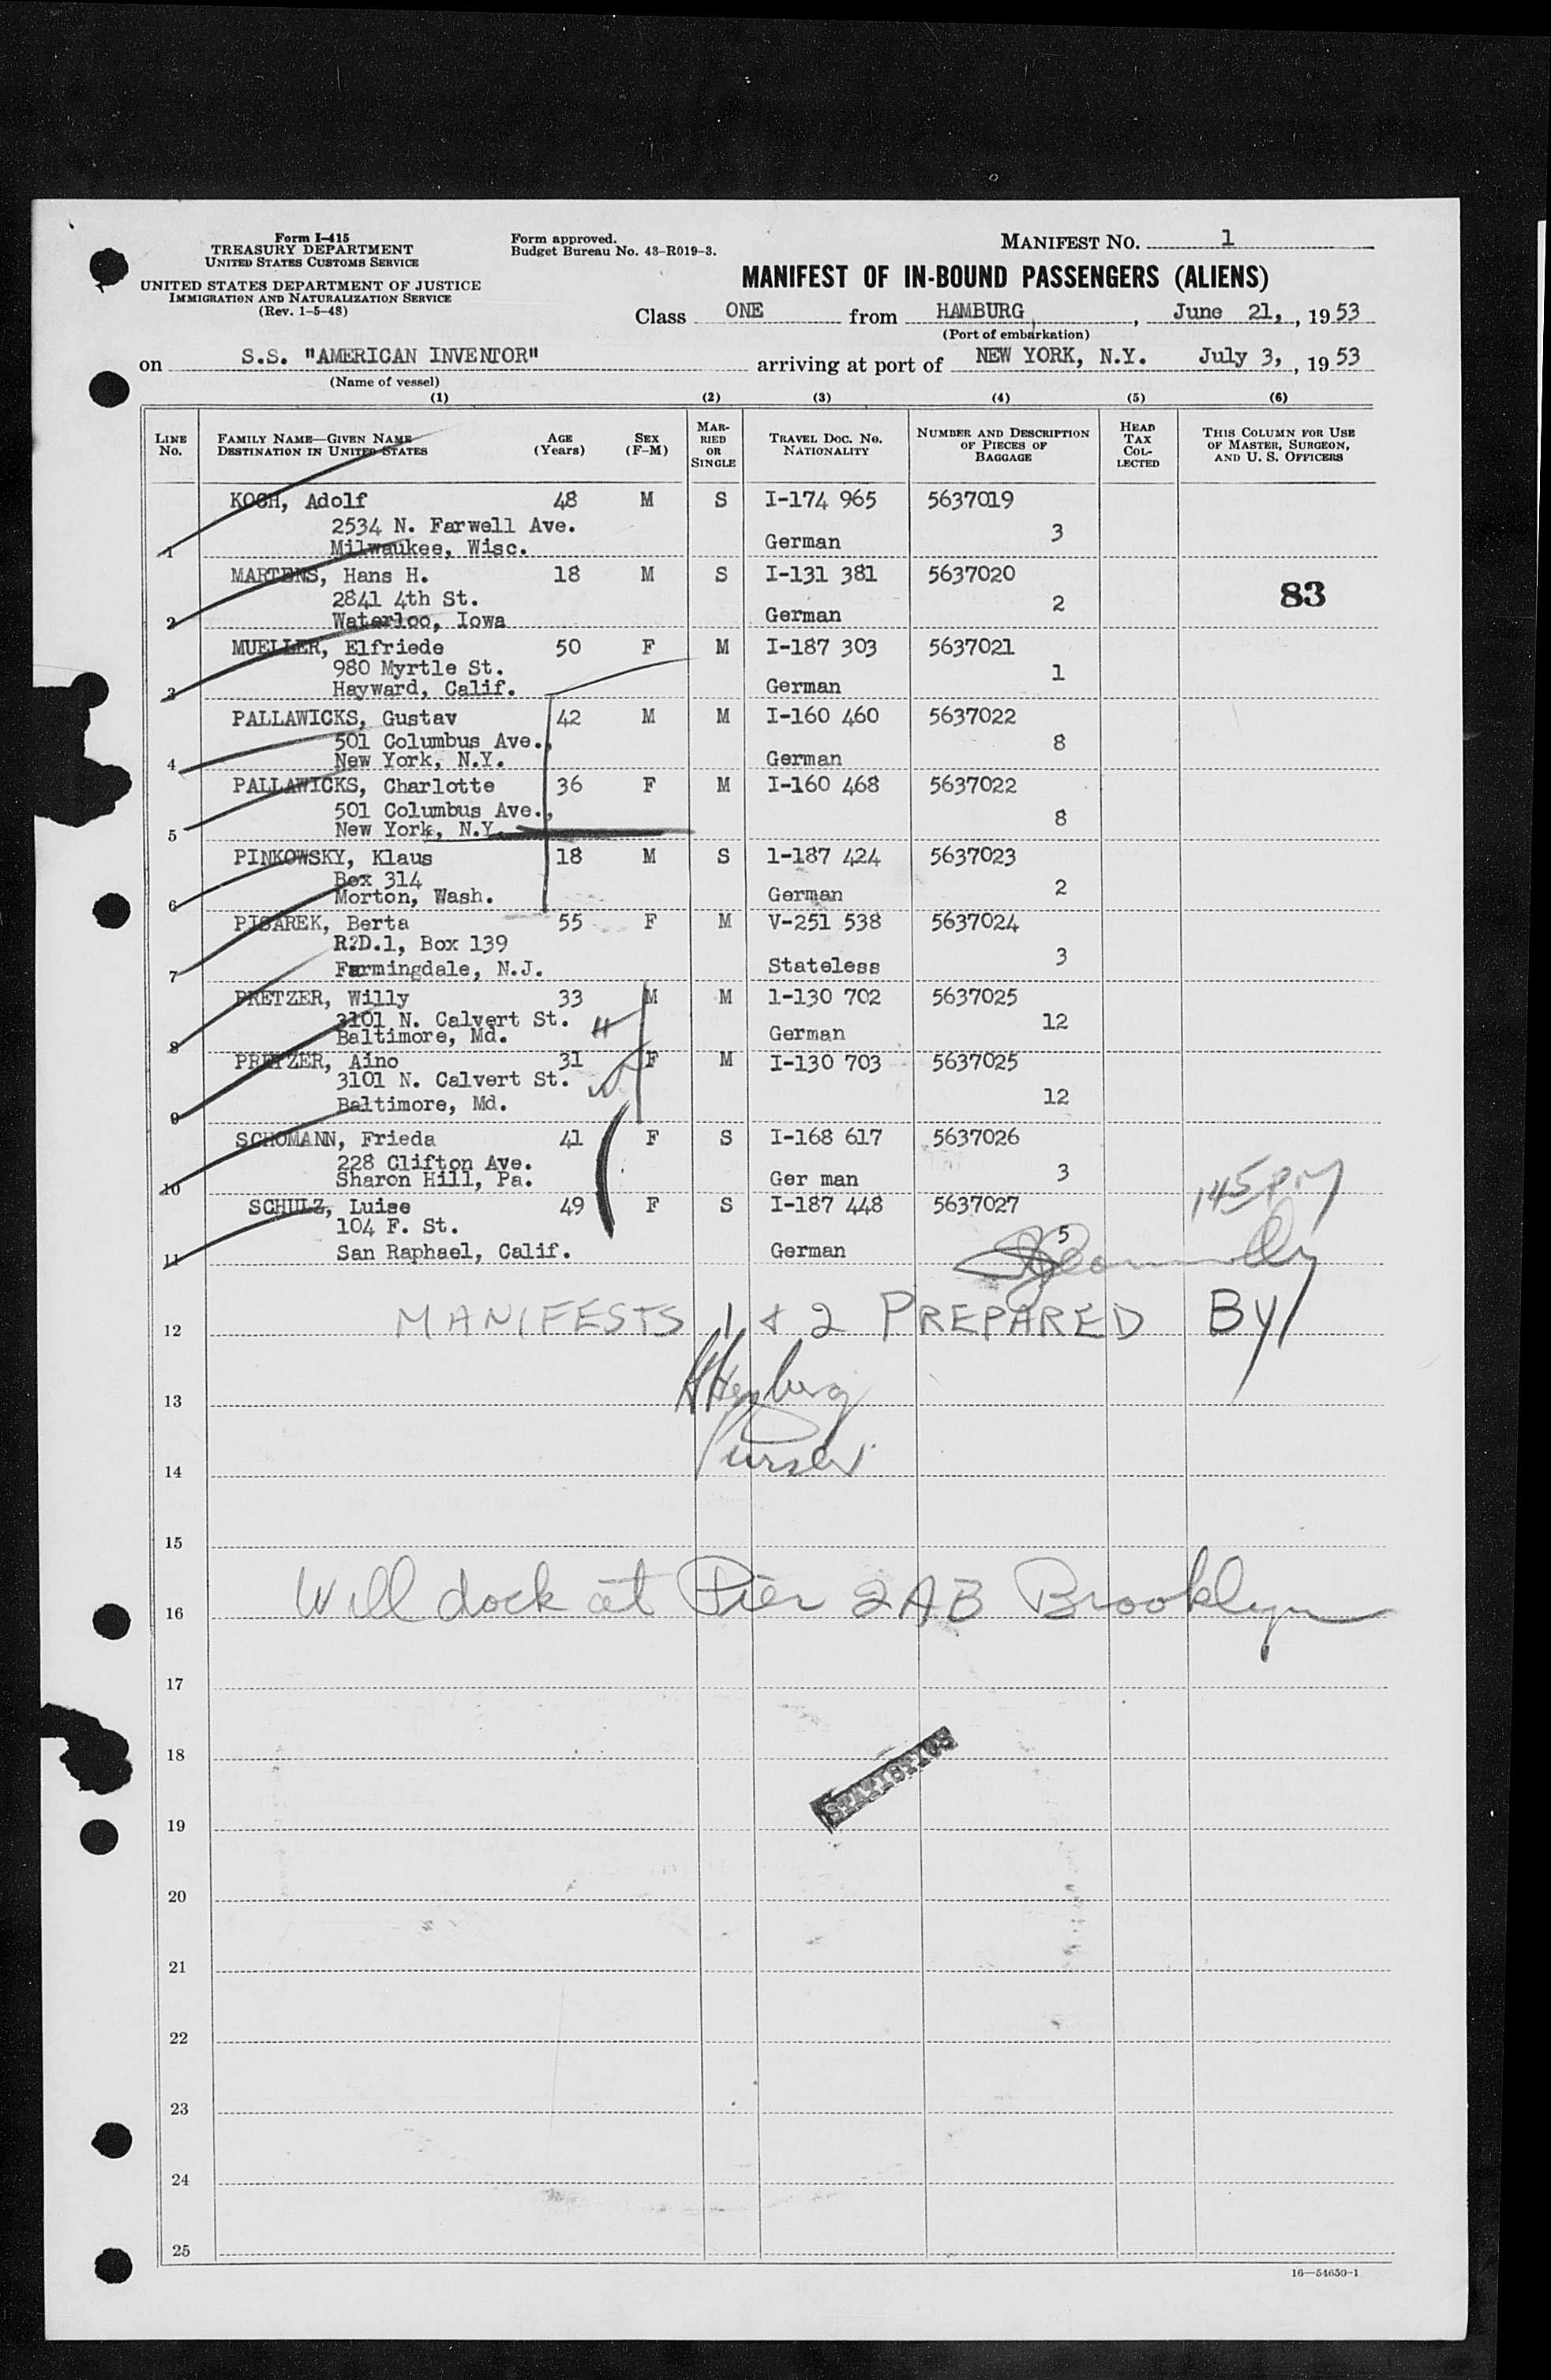 Form I-415
TREASURY DEPARTMENT
UNITED STATES CUSTOMS SERVICE
UNITED STATES DEPARTMENT OF JUSTICE
IMMIGRATION AND NATURALIZATION SERVICE
(Rev. 1-5-48)
Form approved.
Budget Bureau No. 43-R019-3.
MANIFEST NO. 1
MANIFEST OF IN-BOUND PASSENGERS (ALIENS)
Class ONE from HAMBURG, June 21, 1953
(Port of embarkation)
on S.S. "AMERICAN INVENTOR" arriving at port of NEW YORK, N.Y. July 3, 1953
(Name of vessel)
(1) (2) (3) (4) (5) (6)
LINE No. FAMILY NAME—GIVEN NAME DESTINATION IN UNITED STATES AGE (Years) SEX (F-M) MARRIED OR SINGLE TRAVEL DOC. NO. NATIONALITY NUMBER AND DESCRIPTION OF PIECES OF BAGGAGE HEAD TAX COLLECTED THIS COLUMN FOR USE OF MASTER, SURGEON, AND U. S. OFFICERS
KOCH, Adolf 48 M S I-174 965 5637019
2534 N. Farwell Ave. 3
1 Milwaukee, Wisc. German
MARTENS, Hans H. 18 M S I-131 381 5637020
2841 4th St. 2 83
2 Waterloo, Iowa German
MUELLER, Elfriede 50 F M I-187 303 5637021
980 Myrtle St. 1
3 Hayward, Calif. German
PALLAWICKS, Gustav 42 M M I-160 460 5637022
501 Columbus Ave., 8
4 New York, N.Y. German
PALLAWICKS, Charlotte 36 F M I-160 468 5637022
501 Columbus Ave., 8
5 New York, N.Y.
PINKOWSKY, Klaus 18 M S 1-187 424 5637023
Box 314 2
6 Morton, Wash. German
PISAREK, Berta 55 F M V-251 538 5637024
R.D.1, Box 139 3
7 Farmingdale, N.J. Stateless
PRETZER, Willy 33 M M 1-130 702 5637025
3101 N. Calvert St. H 12
8 Baltimore, Md. German
PRETZER, Aino 31 F M I-130 703 5637025
3101 N. Calvert St. W
9 Baltimore, Md. 12
SCHOMANN, Frieda 41 F S I-168 617 5637026
228 Clifton Ave. 3
10 Sharon Hill, Pa. Ger man
145 PM
SCHULZ, Luise 49 F S I-187 448 5637027
104 F. St. 5
11 San Raphael, Calif. German
12 MANIFESTS 1 & 2 PREPARED BY
13
14 Purser
15
16 Will dock at Pier 2AB Brooklyn
17
18 STATISTICS
19
20
21
22
23
24
25
16—54650-1